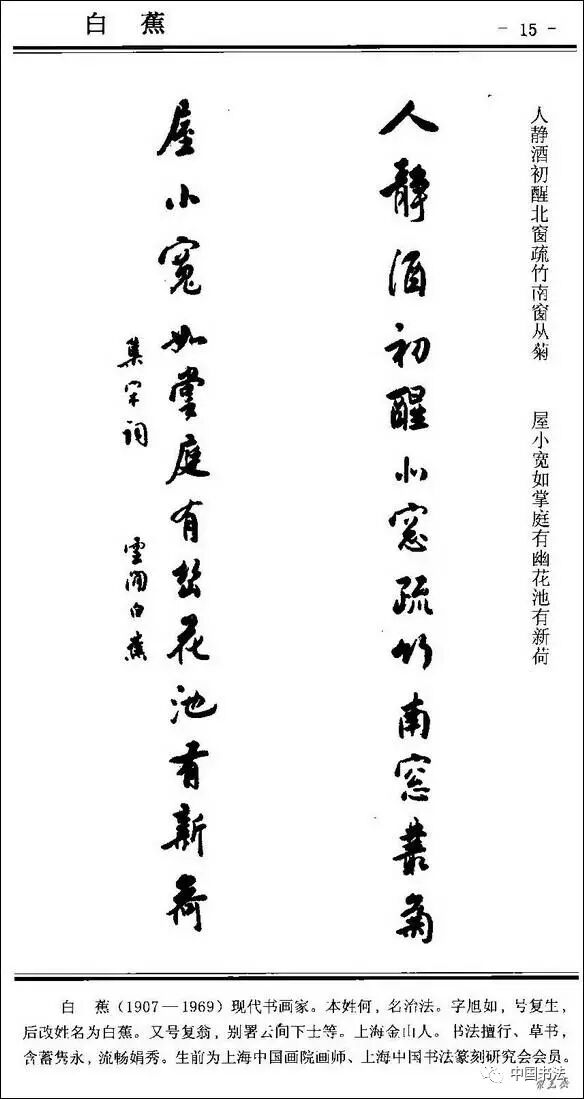 白 蕉
- 15 -
人静酒初醒北窗疏竹南窗从菊 屋小宽如掌庭有幽花池有新荷
人静酒初醒北窓疏竹南窓叢菊
屋小寬如掌庭有幽花池有新荷
集宋词
雲间白蕉
白 蕉（1907—1969）现代书画家。本姓何，名治法。字旭如，号复生，
后改姓名为白蕉。又号复翁，别署云间下士等。上海金山人。书法擅行、草书，
含蓄隽永，流畅娟秀。生前为上海中国画院画师、上海中国书法篆刻研究会会员。
中国书法